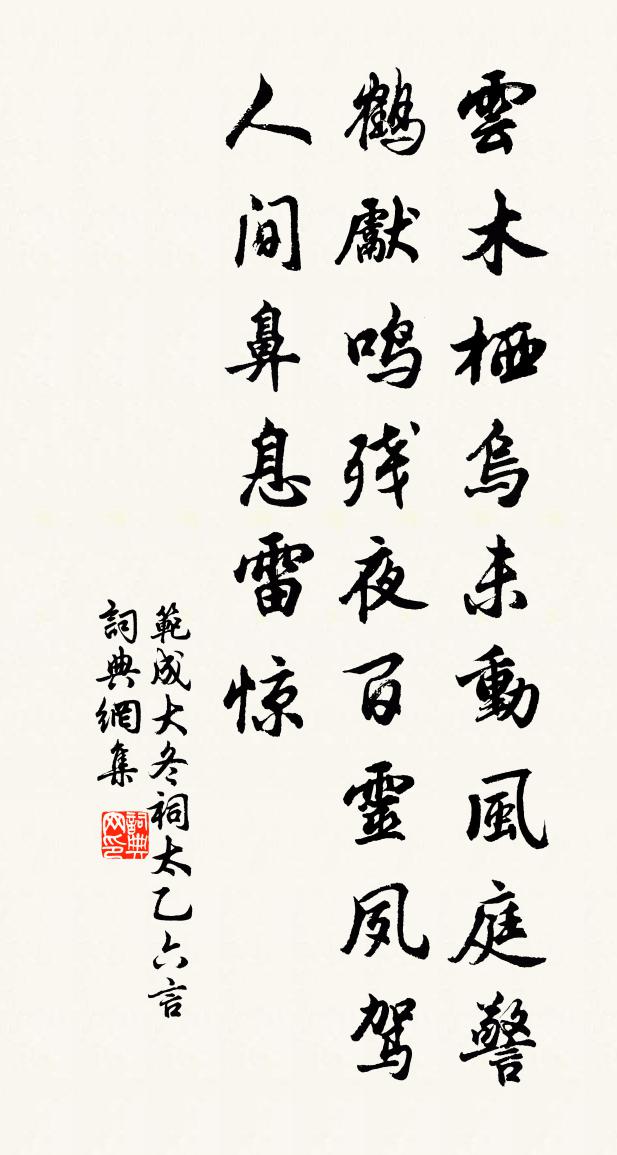 雲木栖烏未動風庭警
鶴獻鸣残夜百靈夙驾
人间鼻息雷惊
範成大冬祠太乙六言
詞典網集
詞典网印